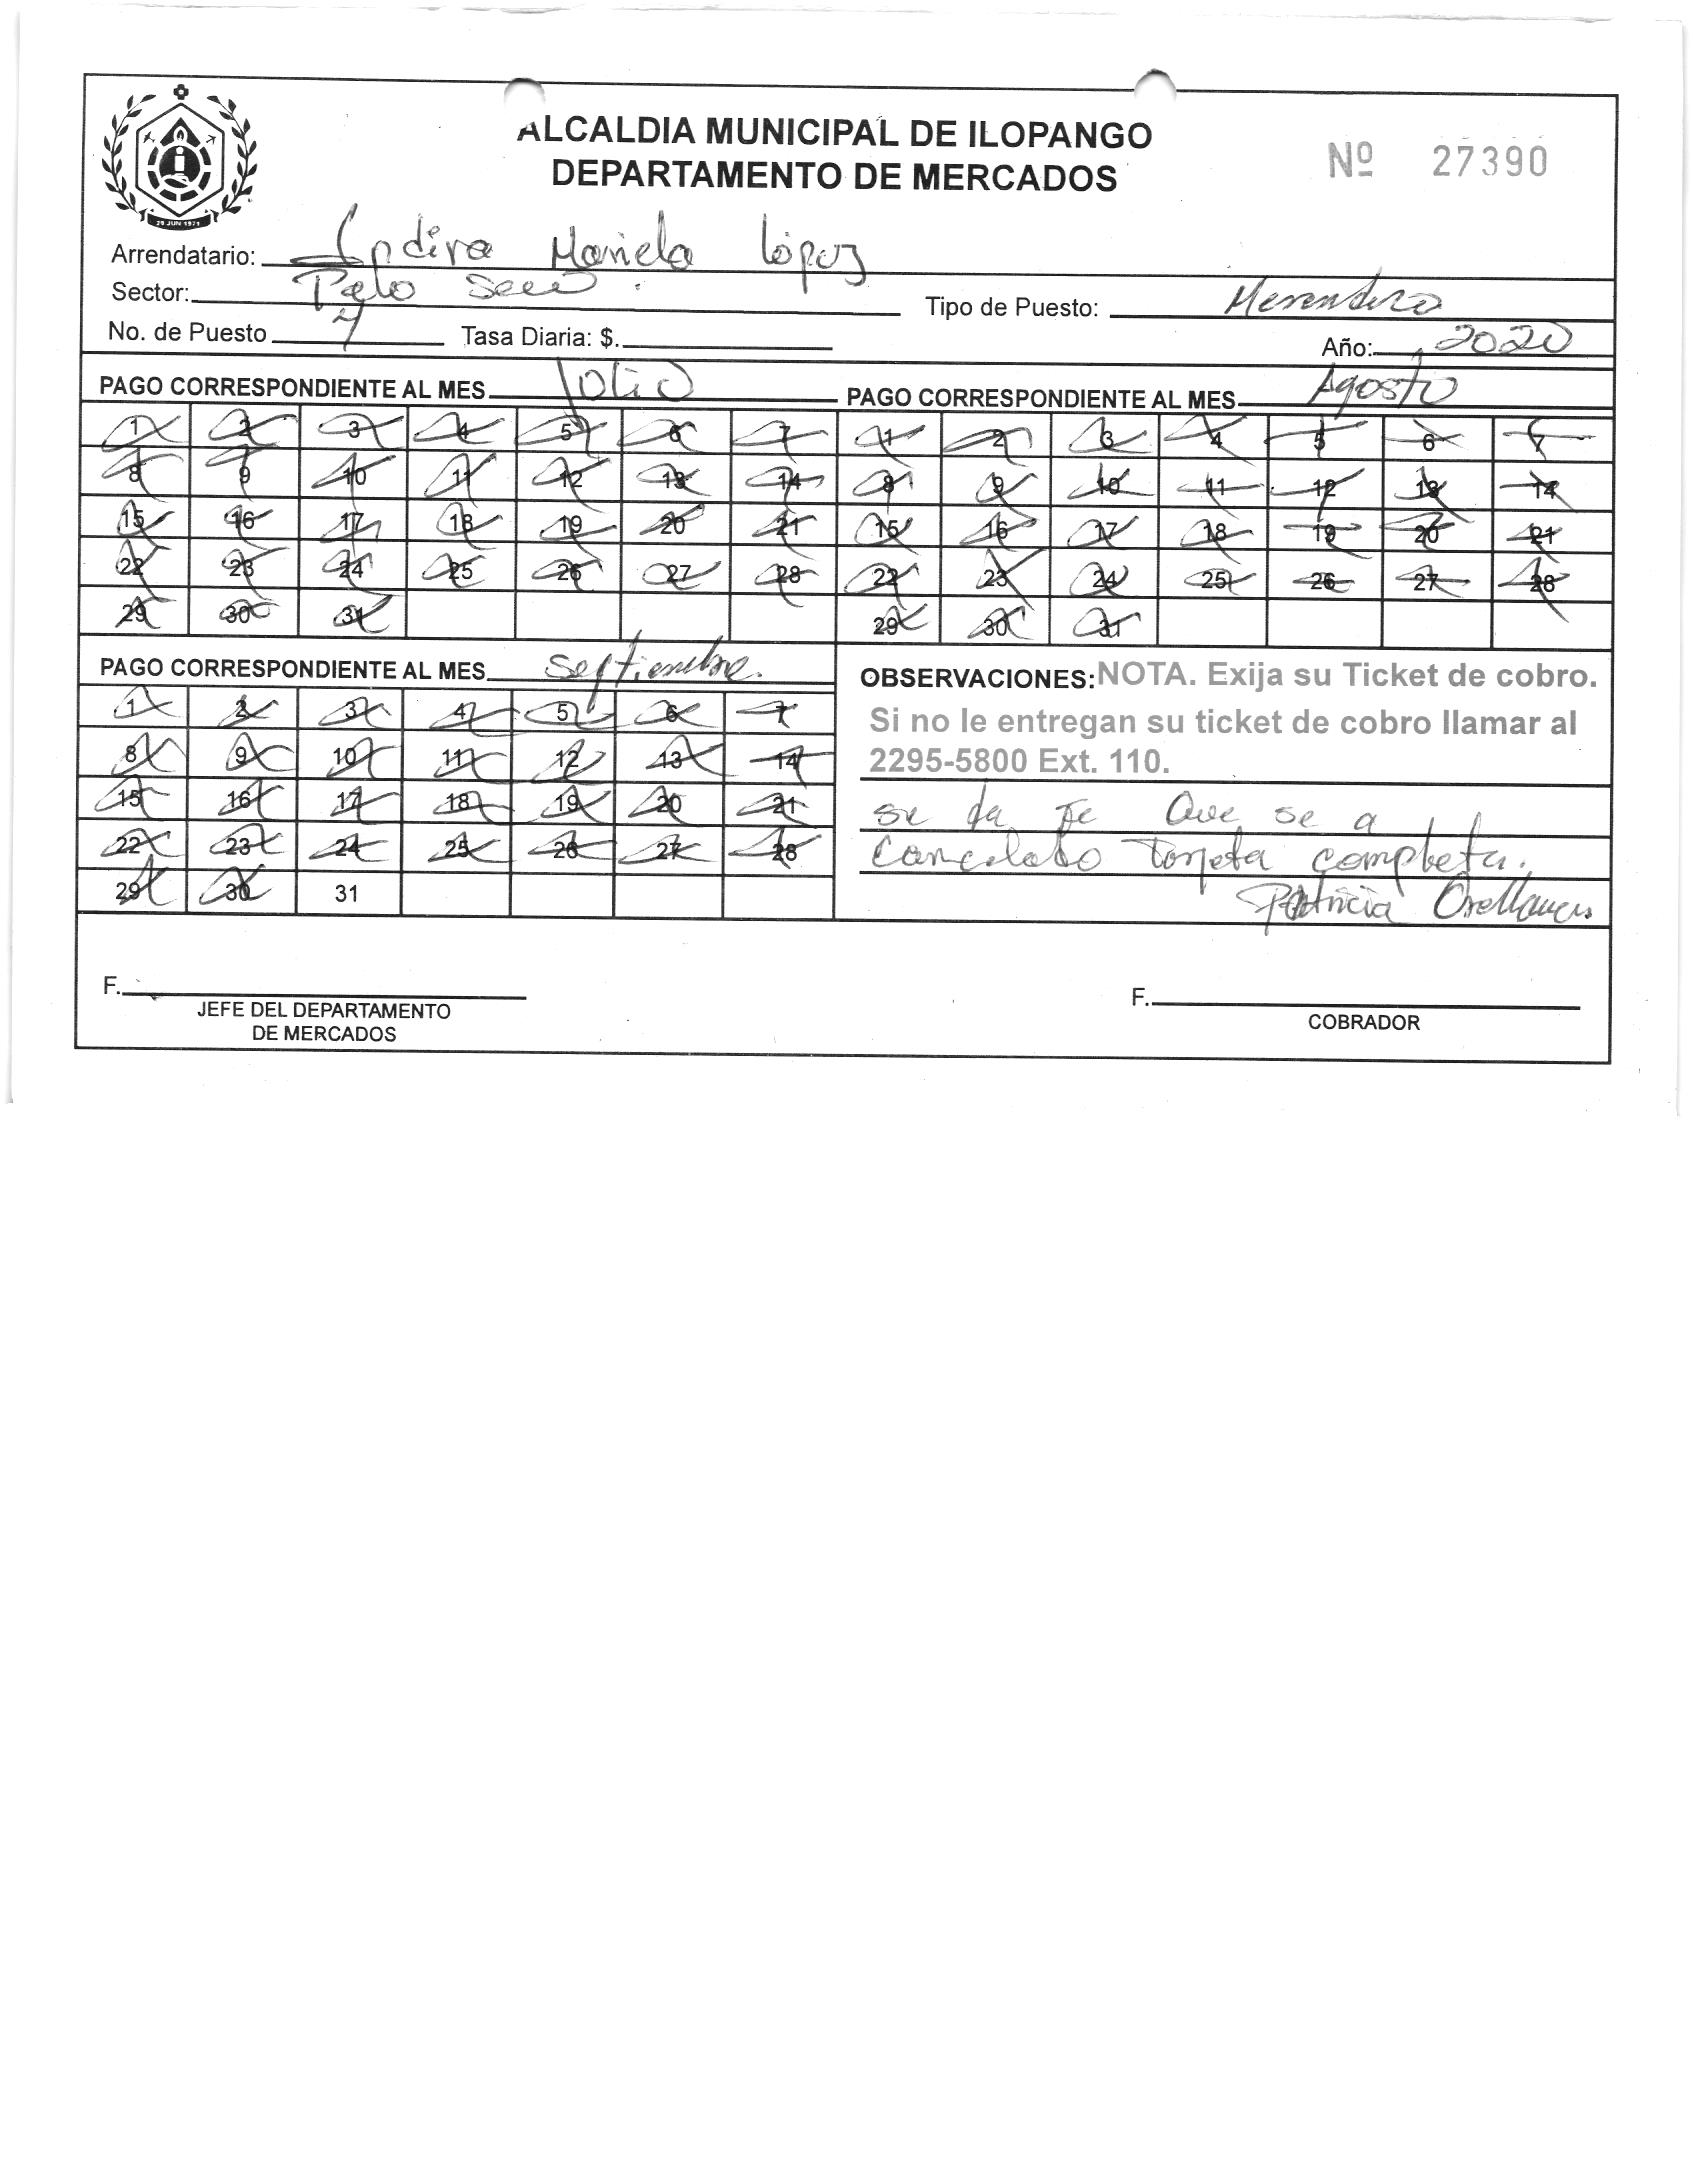 ALCALDIA MUNICIPAL DE ILOPANGO
DEPARTAMENTO DE MERCADOS
Nº 27390
29 JUN 1971
Arrendatario: Indira Mariela López
Sector: Palo Seco.
Tipo de Puesto: Merendero
No. de Puesto 4 Tasa Diaria: $.
Año: 2020
PAGO CORRESPONDIENTE AL MES Julio
1 2 3 4 5 6 7
8 9 10 11 12 13 14
15 16 17 18 19 20 21
22 23 24 25 26 27 28
29 30 31
PAGO CORRESPONDIENTE AL MES Agosto
1 2 3 4 5 6 7
8 9 10 11 12 13 14
15 16 17 18 19 20 21
22 23 24 25 26 27 28
29 30 31
PAGO CORRESPONDIENTE AL MES Septiembre.
1 2 3 4 5 6 7
8 9 10 11 12 13 14
15 16 17 18 19 20 21
22 23 24 25 26 27 28
29 30 31
OBSERVACIONES: NOTA. Exija su Ticket de cobro.
Si no le entregan su ticket de cobro llamar al
2295-5800 Ext. 110.
se da fe Que se a
Cancelado Tarjeta completa.
Patricia Orellana
F.
JEFE DEL DEPARTAMENTO
DE MERCADOS
F.
COBRADOR